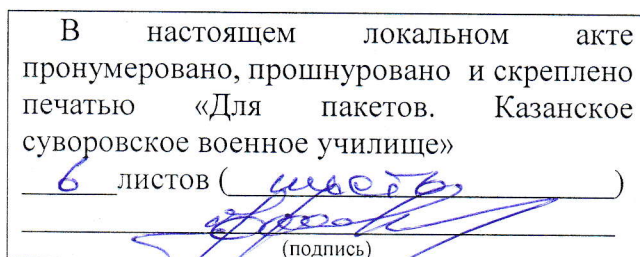 В настоящем локальном акте
пронумеровано, прошнуровано и скреплено
печатью «Для пакетов. Казанское
суворовское военное училище»
6 листов (шесть)
(подпись)